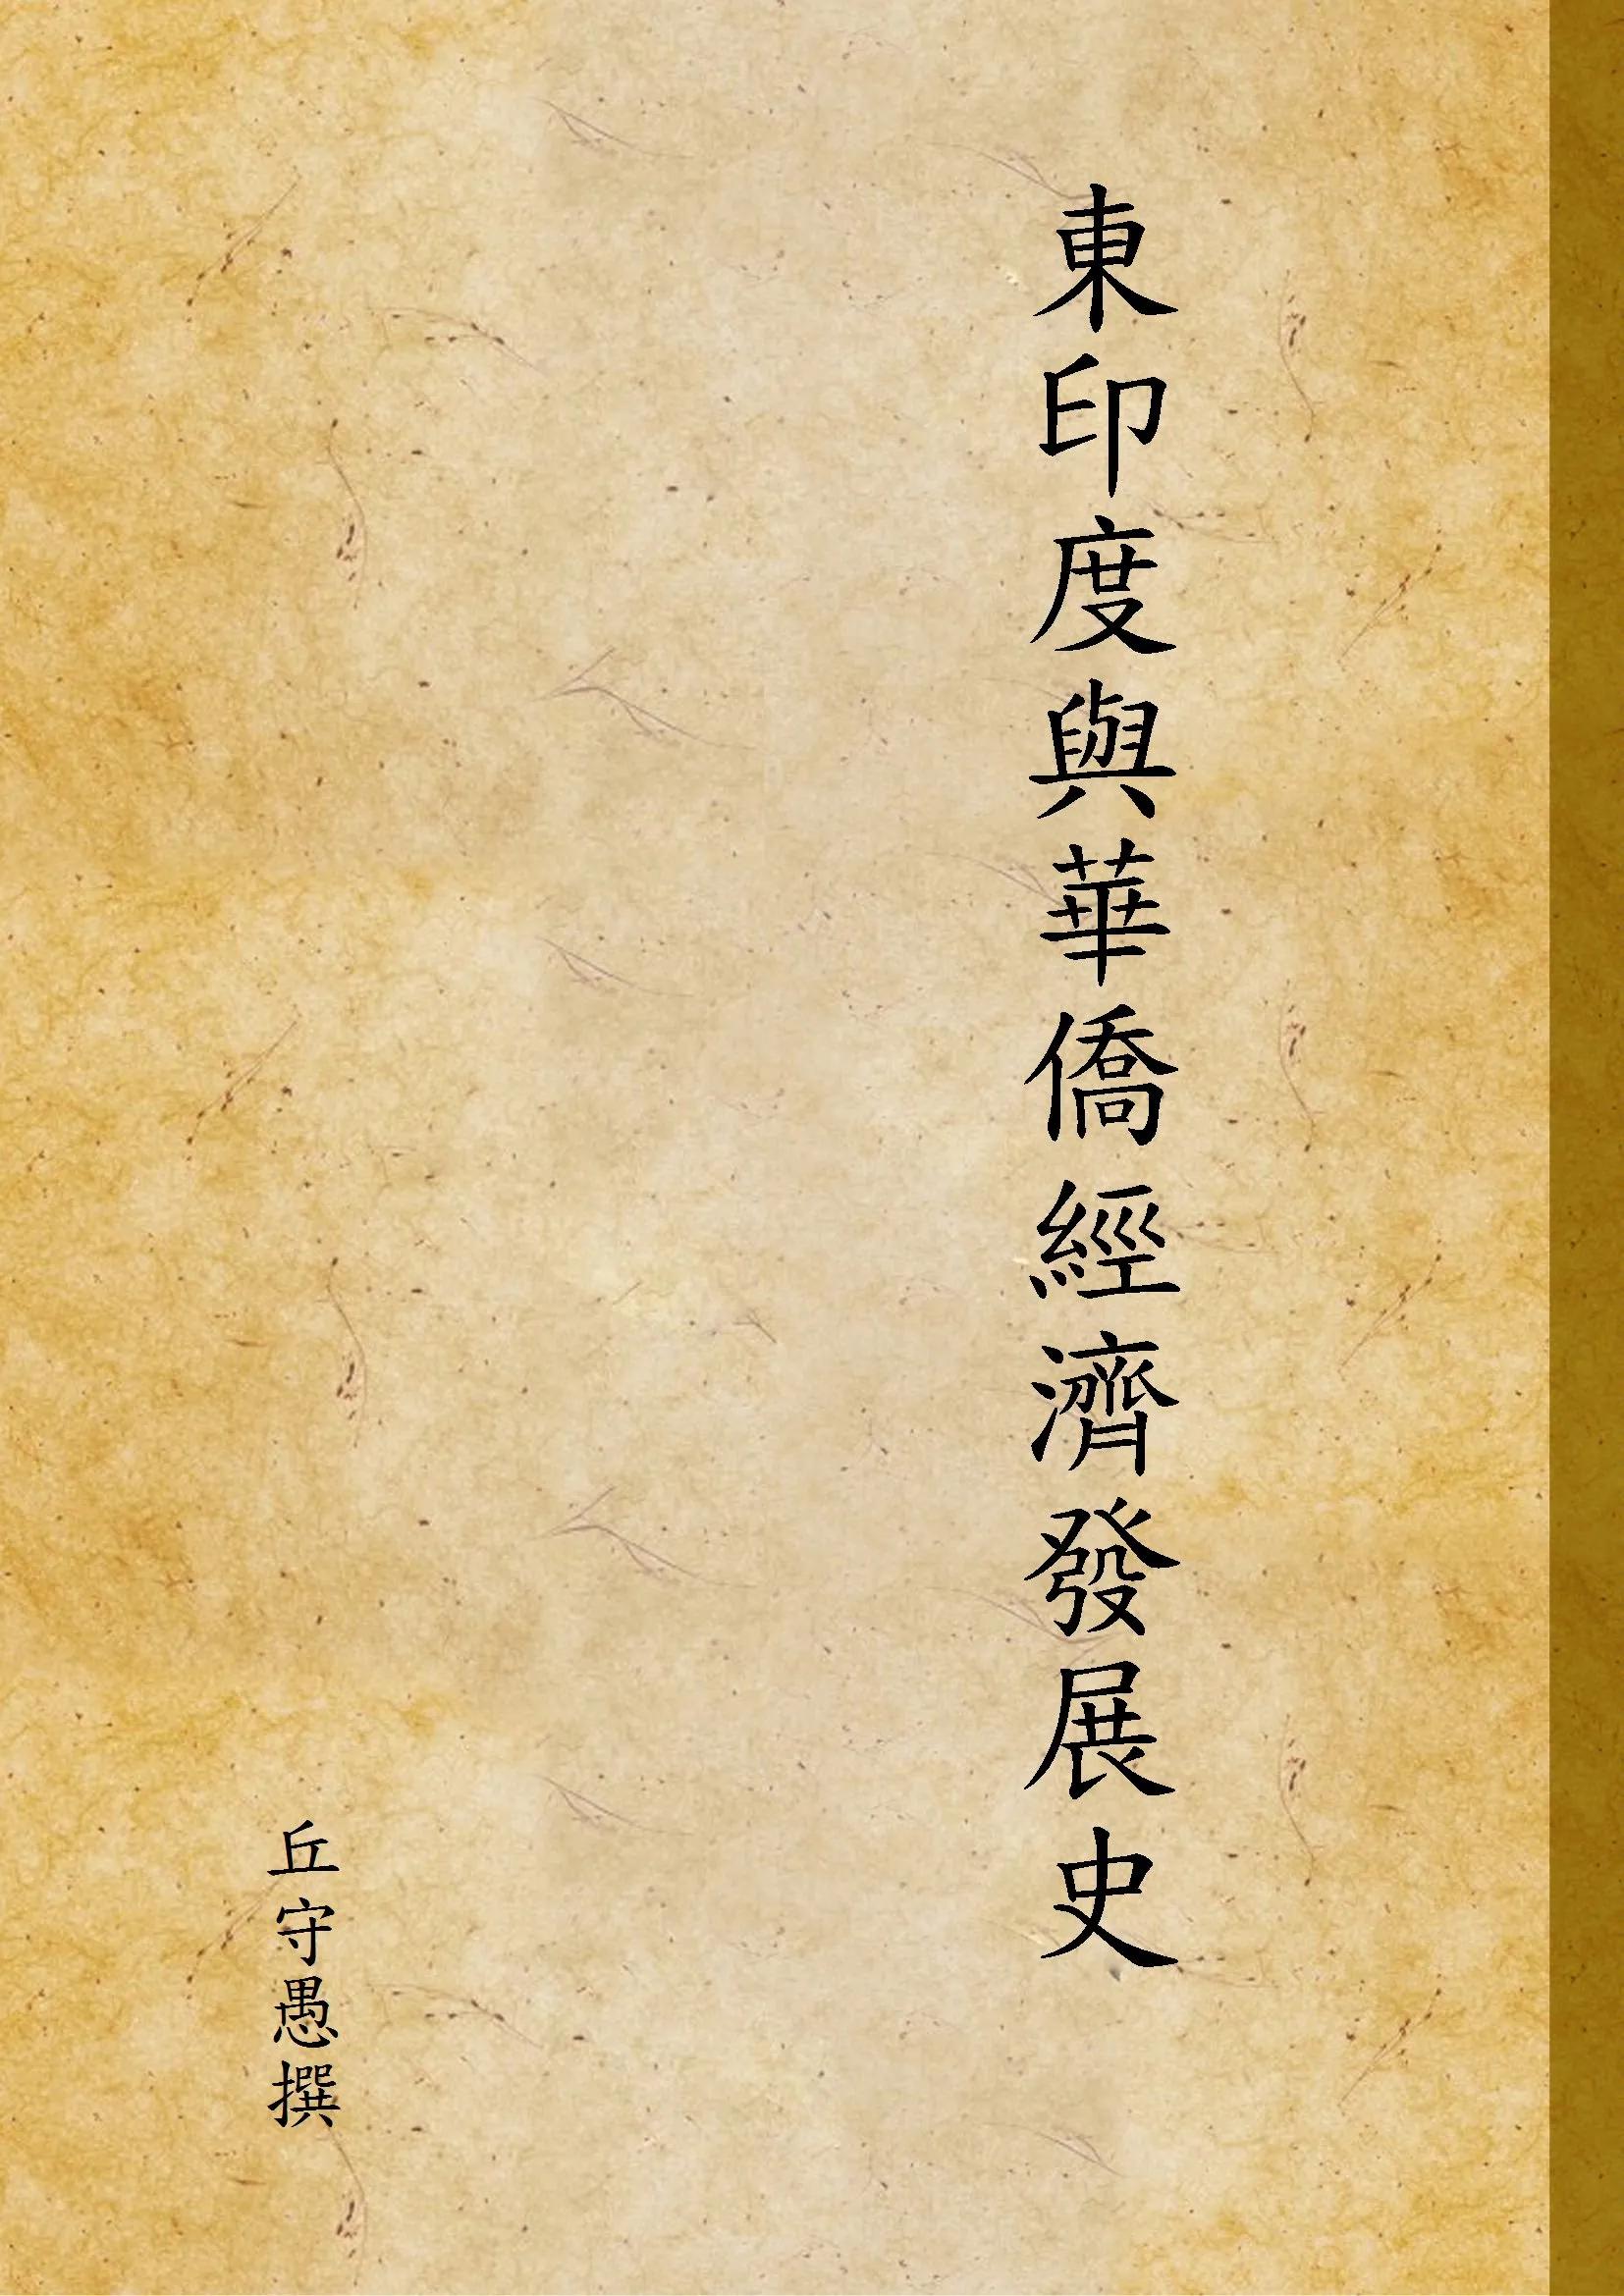 東印度與華僑經濟發展史
丘守愚撰